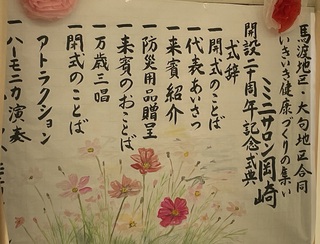 馬渡地区・大句地区合同
いきいき健康づくりの集い
ミニサロン岡崎
開設二十周年記念式典
式辞
一開式のことば
一代表あいさつ
一来賓紹介
一防災用品贈呈
一来賓のおことば
一万歳三唱
一閉式のことば
アトラクション
一ハーモニカ演奏